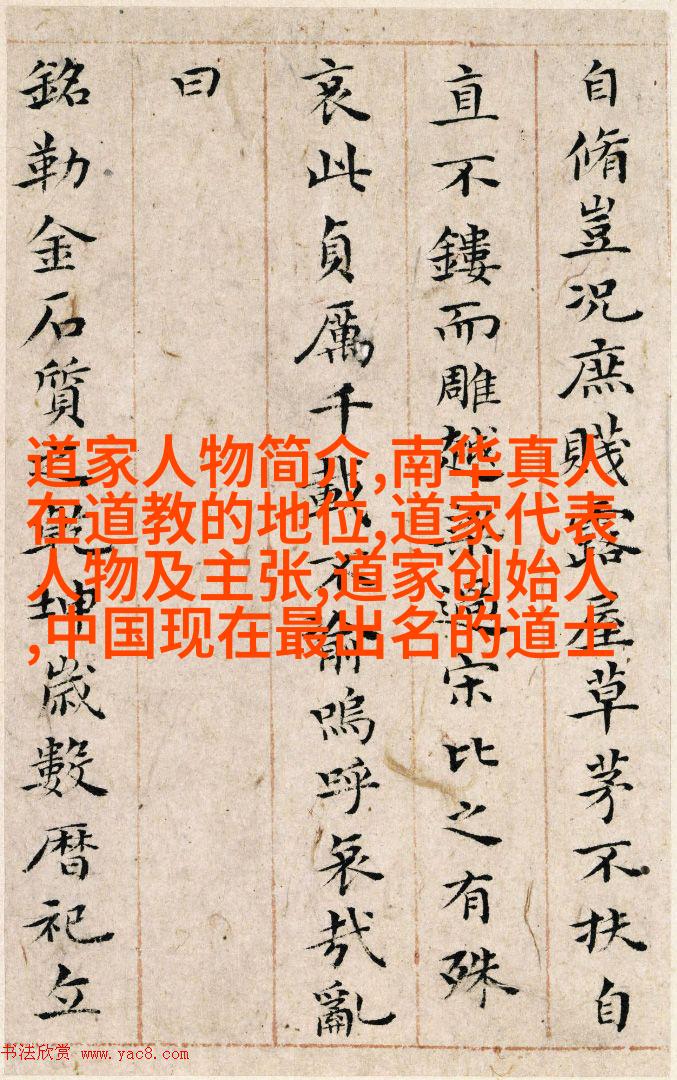 自脩豈況庶賤露屋草茅不扶自
直不鏤而雕越梁過宋比之有殊
哀此貞厲千載不渝嗚呼哀哉亂
曰
銘勒金石質之乾坤歲數曆祀丘
道家人物简介,南华真人
在道教的地位,道家代表
人物及主张,道家创始人
,中国现在最出名的道士
书法欣赏 www.yac8.com